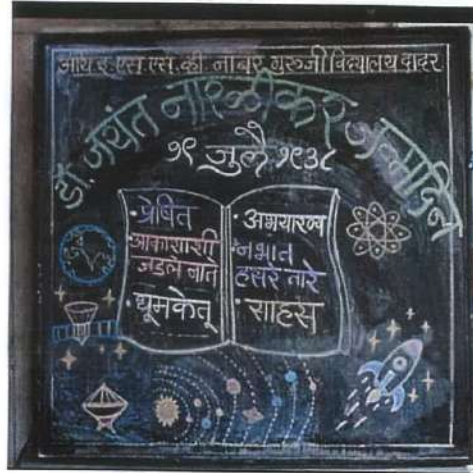 आय इ एस एस.व्ही नाबर गुरुजी विद्यालय दादर
डॉ. जयंत नारळीकर जन्मदिन
१९ जुलै १९३८
• प्रेषित
• आकाशाशी
जडले नाते
• धूमकेतू
• अभयारण्य
• नभात
हसरे तारे
• साहस